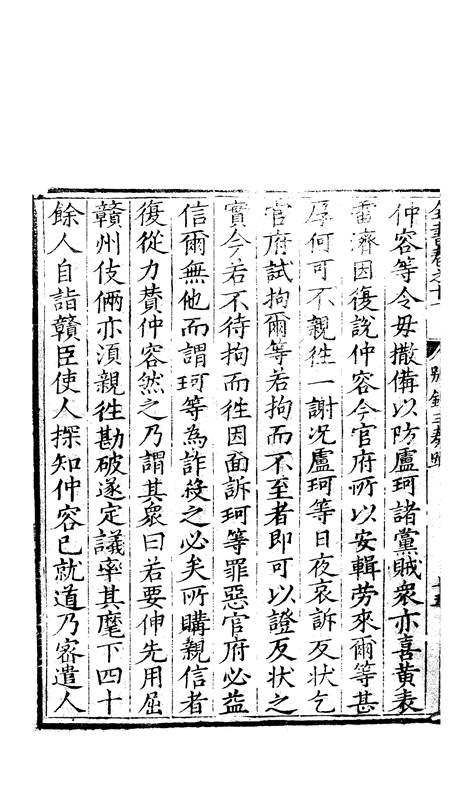 全書卷之十一 別錄三奏疏
仲容等令毋撒備以防盧珂諸黨賊衆亦喜黃表
雷濟因復說仲容今官府所以安輯劳來爾等甚
厚何可不親徃一謝况盧珂等日夜哀訴反狀乞
官府試拘爾等若拘而不至者即可以證反狀之
實今若不待拘而徃因面訴珂等罪惡官府必益
信爾無他而謂珂等為詐殺之必矣所購親信者
復從力賛仲容然之乃謂其衆曰若要伸先用屈
贛州伎倆亦湏親徃勘破遂定議率其麾下四十
餘人自詣贛臣使人探知仲容已就道乃宻遣人